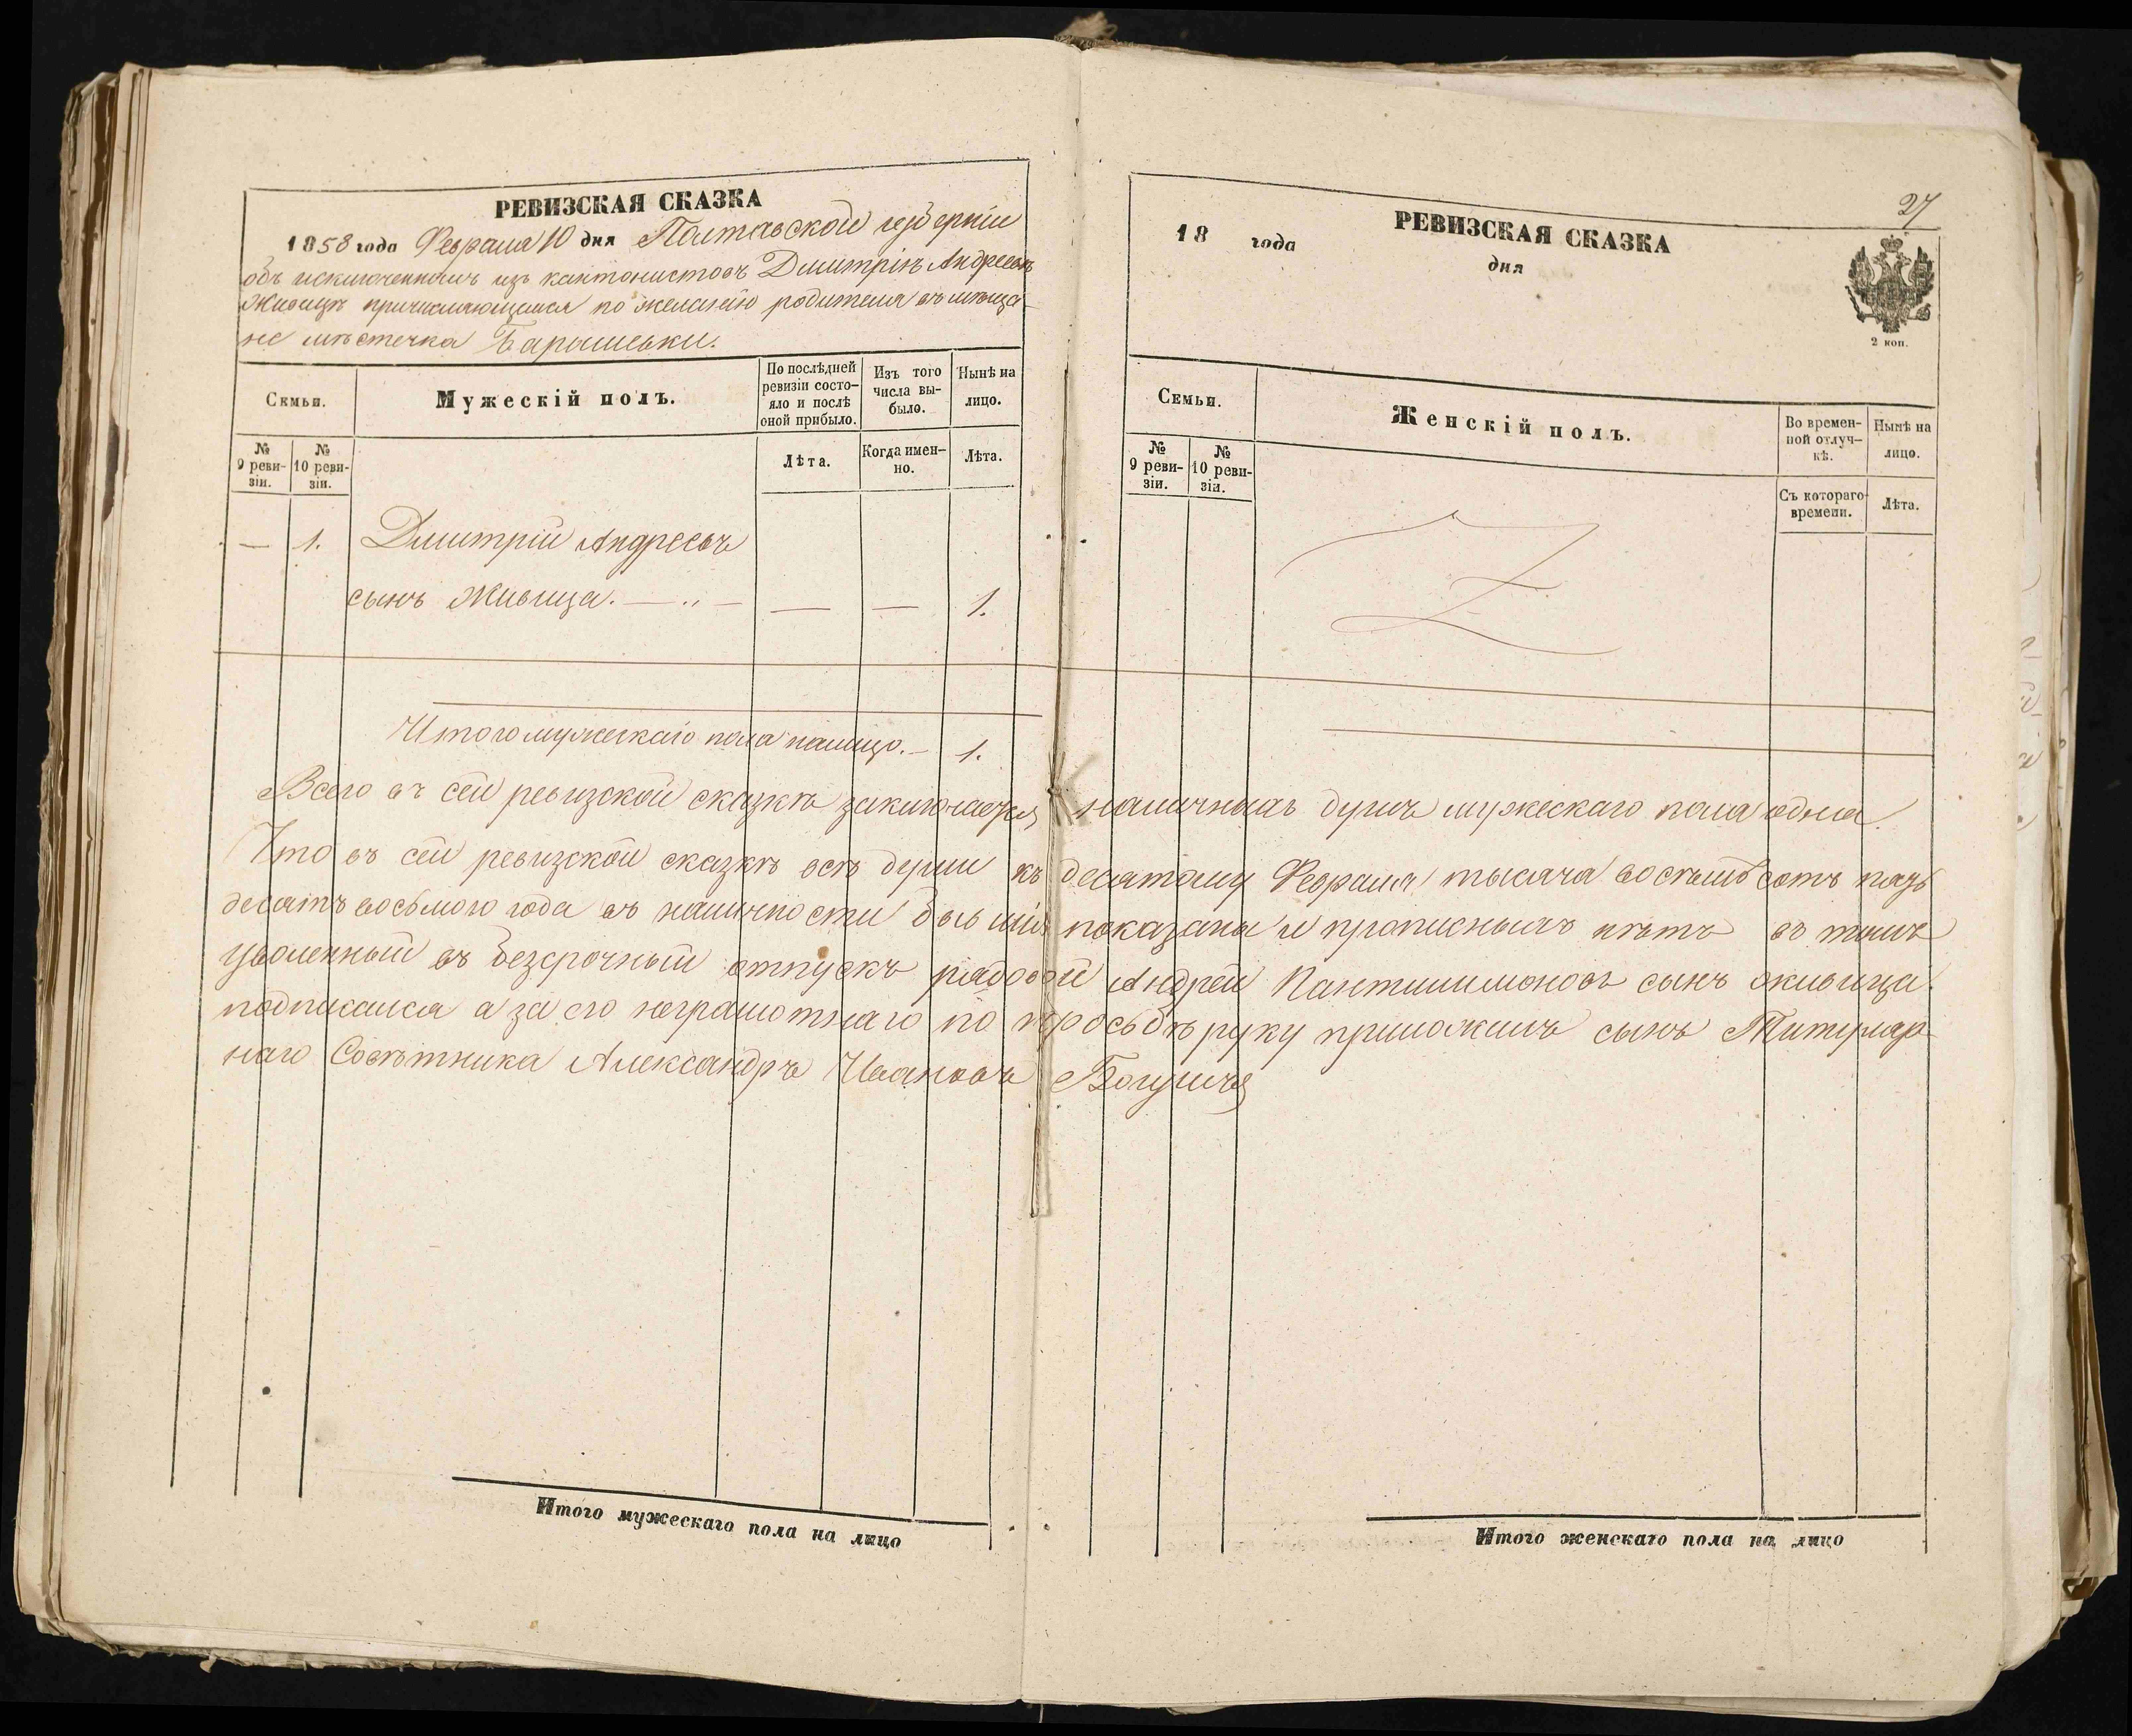 РЕВИЗСКАЯ СКАЗКА
1858 года Февраля 10 дня Полтавской губерніи
объ исключенномъ изъ кантонистовъ Дмитріѣ Андреевѣ
Живицѣ причисляющемся по желанію родителя въ мѣща-
не мѣстечка Барышевки.
Семьи.
Мужескій полъ.
По послѣдней ревизіи состо-
яло и послѣ оной прибыло.
Изъ того числа вы-
было.
Нынѣ на лицо.
№ 9 реви-
зіи.
№ 10 реви-
зіи.
Лѣта.
Когда имен-
но.
Лѣта.
— 1. Дмитрій Андреевъ
сынъ Живица. — „ — — — 1.
Итого мужескаго пола налицо. — 1.
27
РЕВИЗСКАЯ СКАЗКА
18 года дня
2 коп.
Семьи.
Женскій полъ.
Во времен-
ной отлуч-
кѣ.
Нынѣ на лицо.
№ 9 реви-
зіи.
№ 10 реви-
зіи.
Съ котораго времени.
Лѣта.
Всего въ сей ревизской сказкѣ заключается наличныхъ душъ мужескаго пола одна.
Что въ сей ревизской сказкѣ всѣ души къ десятому Февраля тысяча восемьсотъ пядь
десятъ восьмого года въ наличности бывшія показаны и прописныхъ нѣтъ въ томъ
уволенный въ безсрочный отпускъ рядовой Андрей Пантилимоновъ сынъ Живица
подписался а за его неграмотнаго по прозьбѣ руку приложилъ сынъ Титуляр-
наго Совѣтника Александръ Ивановъ Богушъ
Итого мужескаго пола на лицо
Итого женскаго пола на лицо